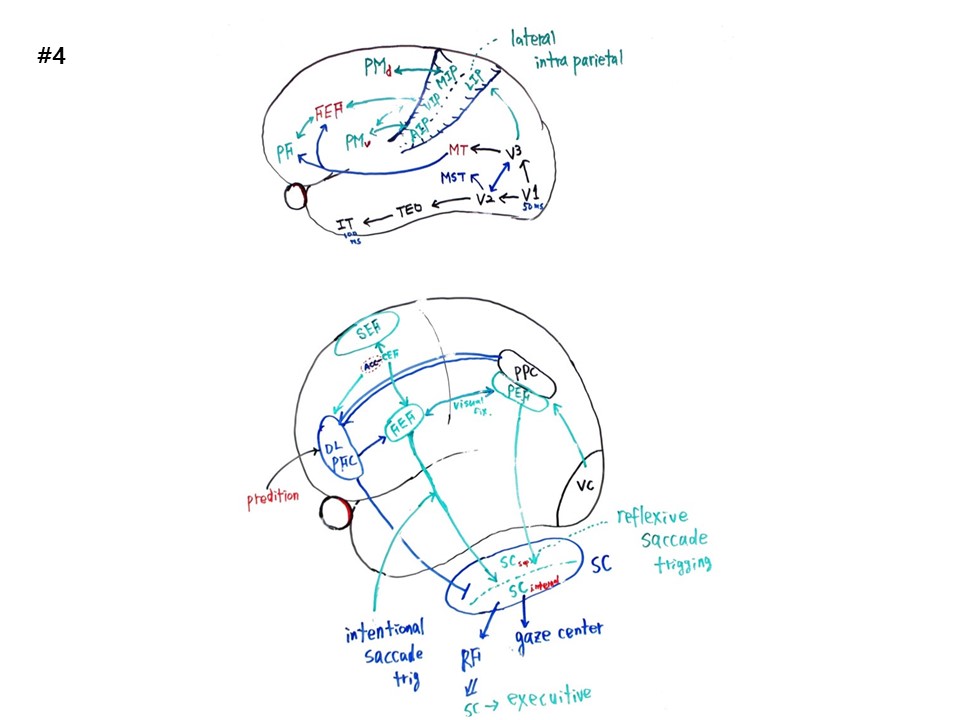 #4
lateral
intra parietal
PMd
MIP
LIP
VIP
FEF
AIP
PMv
PF
MT
V3
MST
V2
V1
50 ms
TEO
IT
100
ms
SEF
ACC-CEF
PPC
PEF
FEF
visual
fix.
DL
PFC
VC
predition
reflexive
saccade
trigging
SC sup
SC
SC intermed
intentional
saccade
trig
gaze center
RF
SC → execuitive